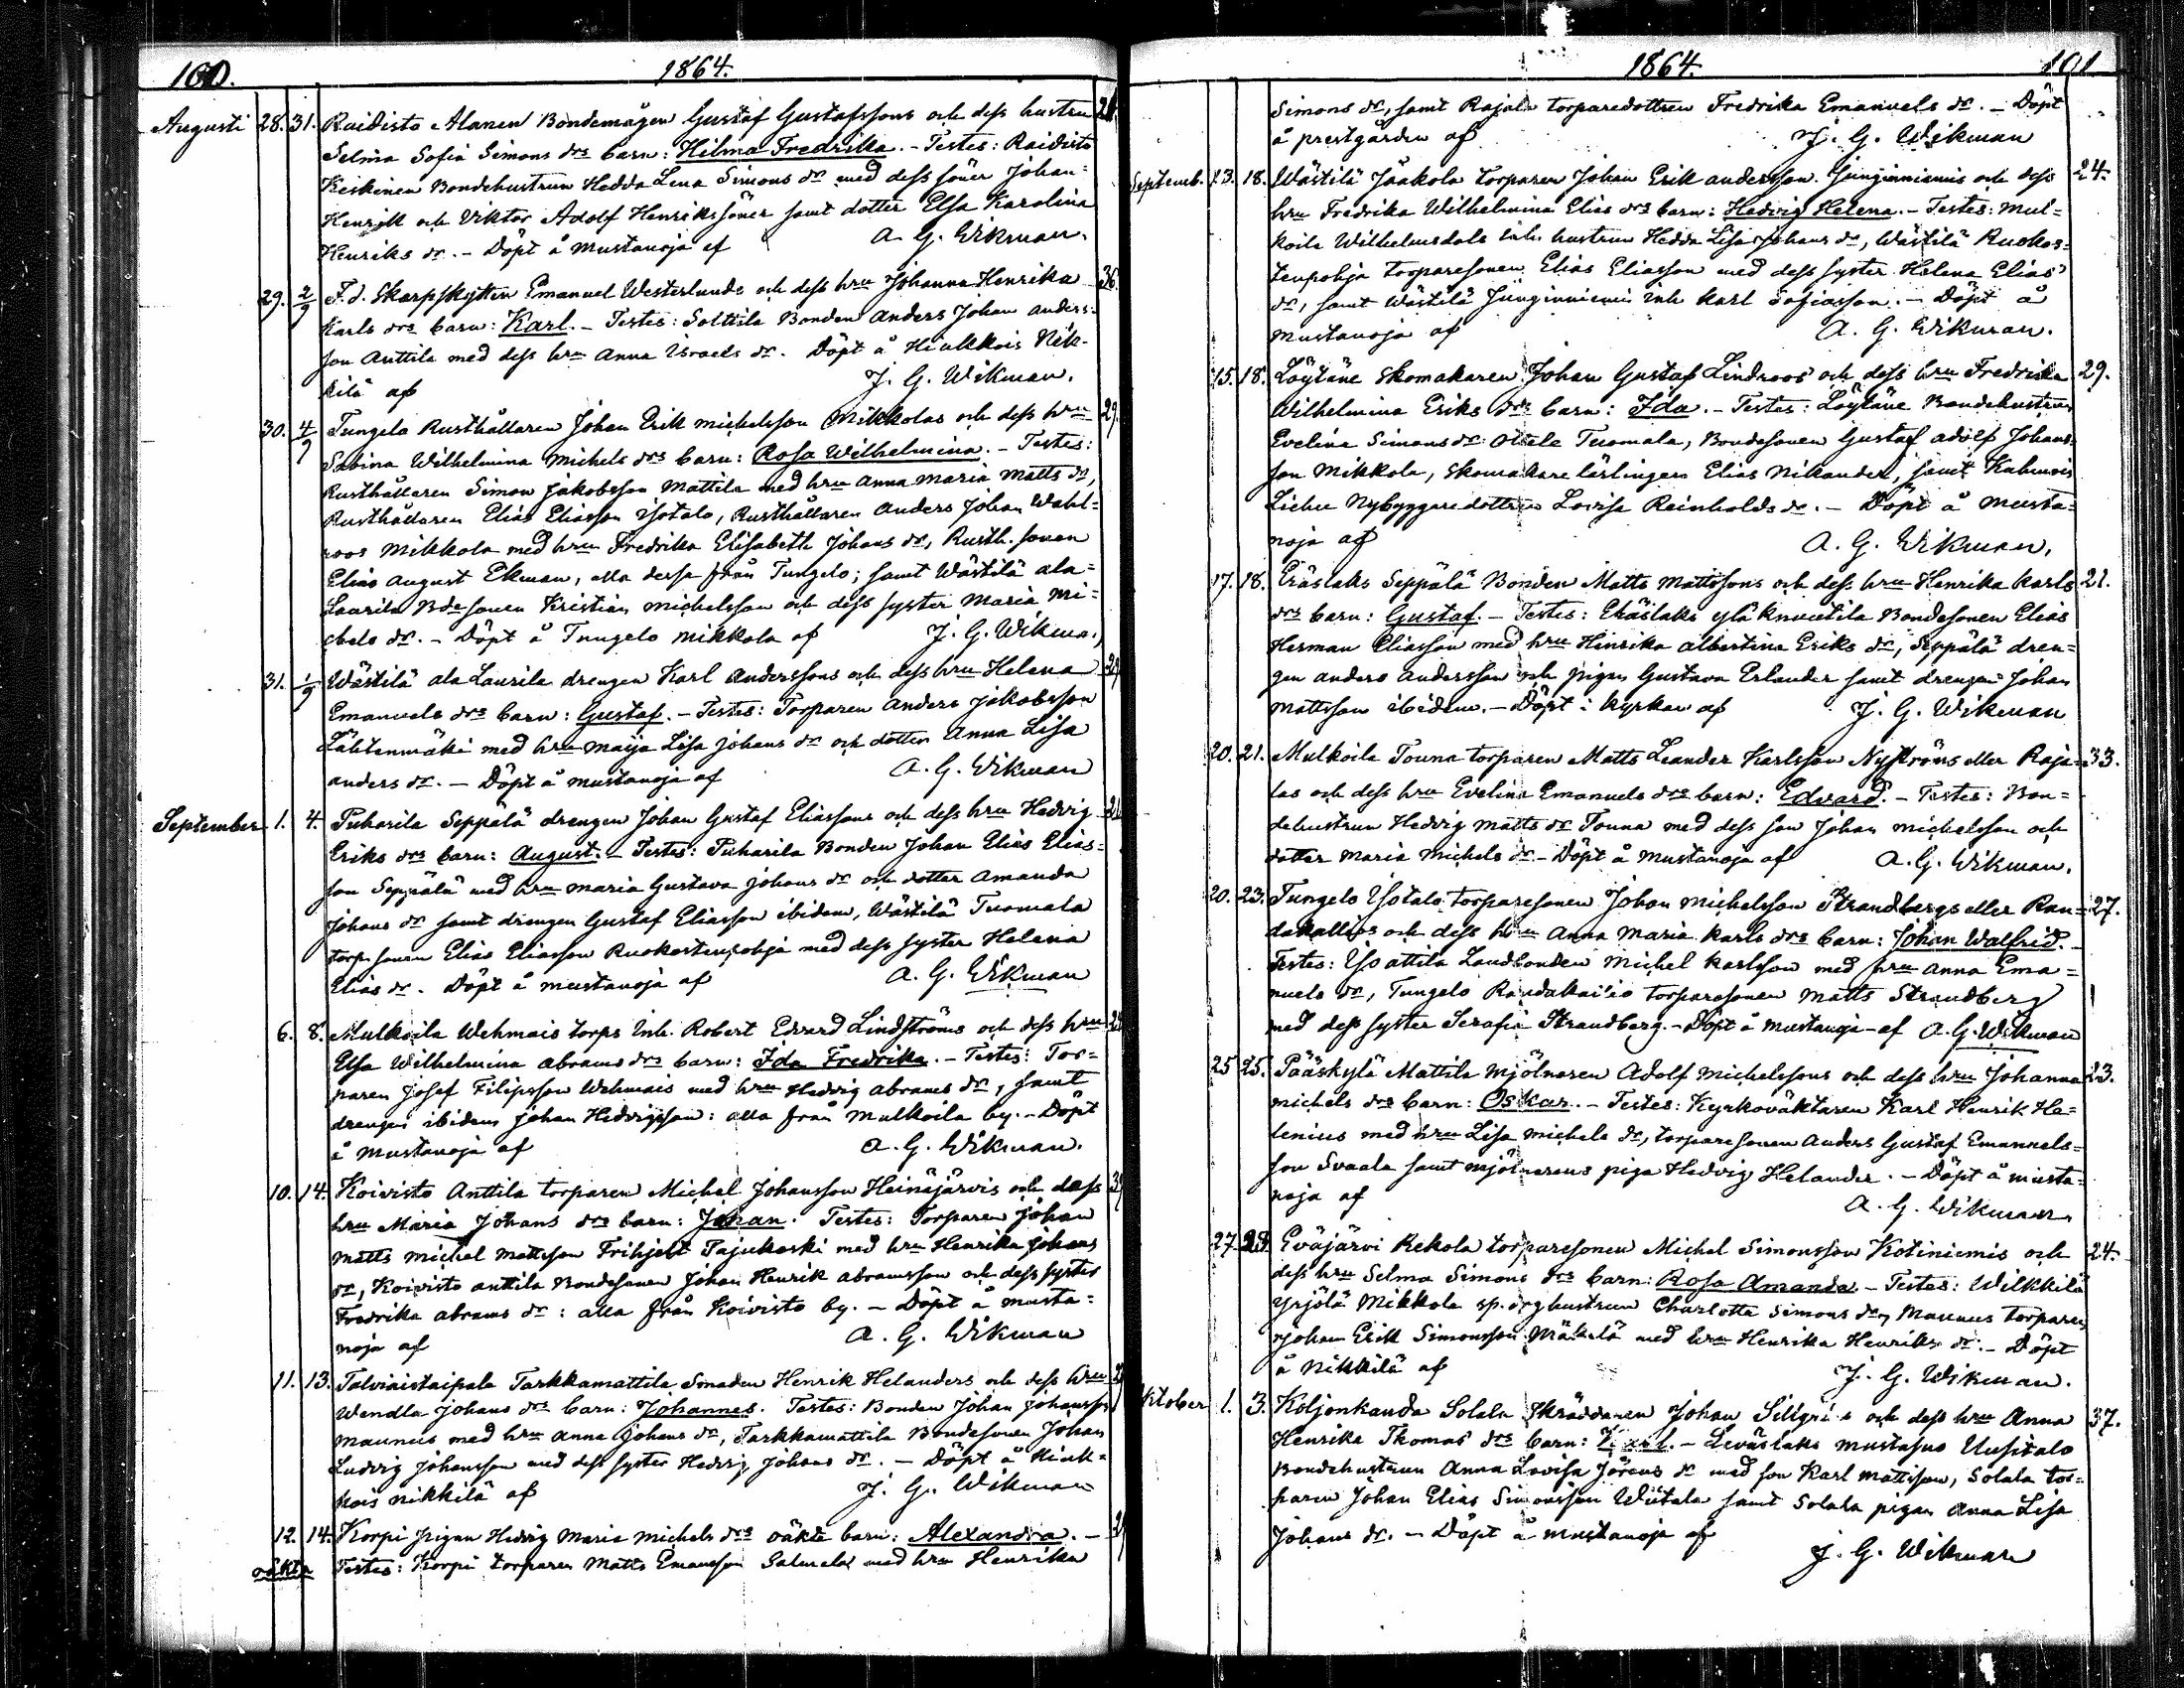 100. 1864.
Augusti 28. 31. Raidisto Alanen Bondemågen Gustaf Gustafssons och dess hustru
Selma Sofia Simons drs barn: Hilma Fredrika. - Testes: Raidisto
Keskinen Bondehustrun Hedda Lena Simons dr med dess söner Johan
Henrik och Viktor Adolf Henrikssöner samt dotter Elsa Karolina
Henriks dr. - Döpt å Mustanoja af A. G. Wikman.
29. 2/9 F. d. Skarpskytten Emanuel Westerlunds och dess hru Johanna Henrika 36.
Karls drs barn: Karl. - Testes: Solttila Bonden Anders Johan Anders-
son Anttila med dess hru Anna Israels dr. Döpt å Hiukkois Nik-
kilä af J. G. Wikman.
30. 4/9 Tungelo Rusthållaren Johan Erik Michelsson Mikkolas och dess hru 29.
Sabina Wilhelmina Michels drs barn: Rosa Wilhelmina. - Testes:
Rusthållaren Simon Jakobsson Mattila med hru Anna Maria Matts dr,
Rusthållaren Elias Eliasson Isotalo, Rusthållaren Anders Johan Wahl-
roos Mikkola med hru Fredrika Elisabeth Johans dr, Rusth. sonen
Elias August Ekman, alla dessa från Tungelo; samt Wästilä ala-
Laurila Bdesonen Kristian Michelsson och dess syster Maria Mi-
chels dr. - Döpt å Tungelo Mikkola af J. G. Wikman
31. 1/9 Wästilä ala Laurila drengen Karl Anderssons och dess hru Helena
Emanuels drs barn: Gustaf. - Testes: Torparen Anders Jakobsson
Lähtenmäki med hru Maija Lisa Johans dr och dotter Anna Lisa
Anders dr. - Döpt å Mustanoja af A. G. Wikman
September 1. 4. Puharila Seppälä drengen Johan Gustaf Eliassons och dess hru Hedvig
Eriks drs barn: August. - Testes: Puharila Bonden Johan Elias Elias-
son Seppälä med hru Maria Gustava Johans dr och dotter Amanda
Johans dr samt drengen Gustaf Eliasson ibidem, Wästilä Tuomala
torp. sonen Elias Eliasson Ruokostenpohja med dess syster Helena
Elias dr. Döpt å Mustanoja af A. G. Wikman
6. 8. Mulkoila Wehmais torps Inh. Robert Edvard Lindströms och dess hru
Elsa Wilhelmina Abrams drs barn: Ida Fredrika. - Testes: Tor-
paren Josef Filipsson Wehmais med hru Hedvig Abrams dr, samt
drengen ibidem Johan Hedvigsson: alla från Mulkoila by. - Döpt
å Mustanoja af A. G. Wikman.
10. 14. Koivisto Anttila torparen Michel Johansson Heinäjärvis och dess
hru Maria Johans drs barn: Johan. Testes: Torparen Johan
Matts Michel Mattsson Frihjelt Tajukoski med hru Henrika Johans
dr, Koivisto Anttila Bondesonen Johan Henrik Abramsson och dess syster
Fredrika Abrams dr: alla från Koivisto by. - Döpt å Musta-
noja af A. G. Wikman
11. 13. Talviaistaipale Tarkkamattila Smeden Henrik Helanders och dess hru
Wendla Johans drs barn: Johannes. Testes: Bonden Johan Johansson
Maunus med hru Anna Johans dr, Tarkkamattila Bondesonen Johan
Ludvig Johansson med dess syster Hedvig Johans dr. - Döpt å Hiuk-
kois Nikkilä af J. G. Wikman
12. 14. Korpi pigan Hedvig Maria Michels drs oäkta barn: Alexandra. -
oäkta Testes: Korpi torparen Matts Emansson Salmelas med hru Henrika
1864. 101
Simons dr, samt Rajala torparedottren Fredrika Emanuels dr. - Döpt
å prestgården af J. G. Wikman
Septemb. 13. 18. Wästilä Jaakola torparen Johan Erik Andersson Junginniemis och dess 24.
hru Fredrika Wilhelmina Elias drs barn: Hedvig Helena. - Testes: Mul-
koila Wilhelmsdals Inh. hustrun Hedda Lisa Johans dr, Wästilä Ruokos-
tenpohja torparesonen Elias Eliasson med dess syster Helena Elias
dr, samt Wästilä Junginniemi Inh Karl Sofiasson. - Döpt å
Mustanoja af A. G. Wikman.
15. 18. Löytäne Skomakaren Johan Gustaf Lindroos och dess hru Fredrika 29.
Wilhelmina Eriks drs barn: Ida. - Testes: Löytäne Bondehustrun
Evelina Simons dr Tuomala, Bondesonen Gustaf Adolf Johans-
son Mikkola, Skomakare lärlingen Elias Nikander, samt Kuhmois
Nybyggaredottren Lovisa Reinholds dr. - Döpt å Musta-
noja af A. G. Wikman.
17. 18. Eräslaks Seppälä Bonden Matts Mattssons och dess hru Henrika Karls 21.
drs barn: Gustaf. - Testes: Eräslaks ylä Knuutila Bondesonen Elias
Herman Eliasson med hru Hinrika Albertina Eriks dr, Seppälä dren-
gen Anders Andersson och pigan Gustava Erlander samt drengen Johan
Mattsson ibidem. - Döpt i kyrkan af J. G. Wikman
20. 21. Mulkoila Touna torparen Matts Leander Karlsson Nyströms eller Raja- 33.
las och dess hru Evelina Emanuels drs barn: Edvard. - Testes: Bon-
dehustrun Hedvig Matts dr Touna med dess son Johan Michelsson och
dotter Maria Michels dr - Döpt å Mustanoja af A. G. Wikman.
20. 23. Tungelo Isotalo torparesonen Johan Michelsson Strandbergs eller Ran- 27.
dakallios och dess hru Anna Maria Karls drs barn: Johan Walfrid. -
Testes: Iso attila Landbonden Michel Karlsson med hru Anna Ema-
nuels dr, Tungelo Randakallio torparesonen Matts Strandberg
med dess syster Serafia Strandberg. - Döpt å Mustanoja af A. G. Wikman
25 25. Pääskylä Mattila Mjölnaren Adolf Michelssons och dess hru Johanna 23.
Michels drs barn: Oskar. - Testes: Kyrkoväktaren Karl Henrik He-
lenius med hru Lisa Michels dr, torparesonen Anders Gustaf Emanuels-
son Svaala samt mjölnarens piga Hedvig Helander. - Döpt å Musta-
noja af A. G. Wikman
27. 28. Eväjärvi Rekola torparesonen Michel Simonsson Kotiniemis och 24.
dess hru Selma Simons drs barn: Rosa Amanda. - Testes: Wilkkilä
Yrjölä Mikkola hustrun Charlotta Simons dr, Maunus torparen
Johan Erik Simonsson Mäkelä med hru Henrika Henriks dr. - Döpt
å Nikkilä af J. G. Wikman.
ktober 1. 3. Koljonkanda Solala Skräddaren Johan och dess hru Anna 37.
Henrika Thomas drs barn: Karl. - Leväslaks Mustasuo Uusitalo
Bondehustrun Anna Lovisa Jörens dr med son Karl Mattsson, Solala tor-
paren Johan Elias Simonsson Wiitala samt Solala pigan Anna Lisa
Johans dr. - Döpt å Mustanoja af
J. G. Wikman